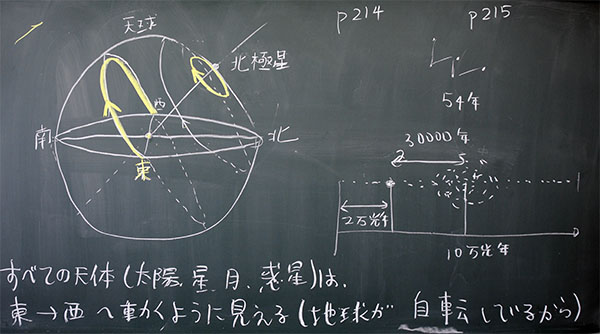 p214 p215
天球
北極星
西
南
北
東
54年
30000年
2万光年
10万光年
すべての天体(太陽、星、月、惑星)は、
東→西へ動くように見える(地球が 自転しているから)